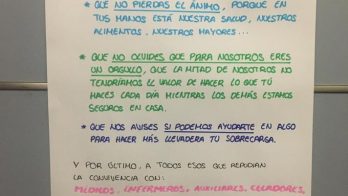 * QUE NO PIERDAS EL ÁNIMO, PORQUE EN
TUS MANOS ESTÁ NUESTRA SALUD, NUESTROS
ALIMENTOS, NUESTROS MAYORES...
* QUE NO OLVIDES QUE PARA NOSOTROS ERES
UN ORGULLO, QUE LA MITAD DE NOSOTROS NO
TENDRÍAMOS EL VALOR DE HACER LO QUE TÚ
HACES CADA DÍA MIENTRAS LOS DEMÁS ESTAMOS
SEGUROS EN CASA.
* QUE NOS AVISES SI PODEMOS AYUDARTE EN ALGO
PARA HACER MÁS LLEVADERA TU SOBRECARGA.
Y POR ÚLTIMO, A TODOS ESOS QUE REPUDIAN
LA CONVIVENCIA CON:
MÉDICOS, ENFERMEROS, AUXILIARES, CELADORES,